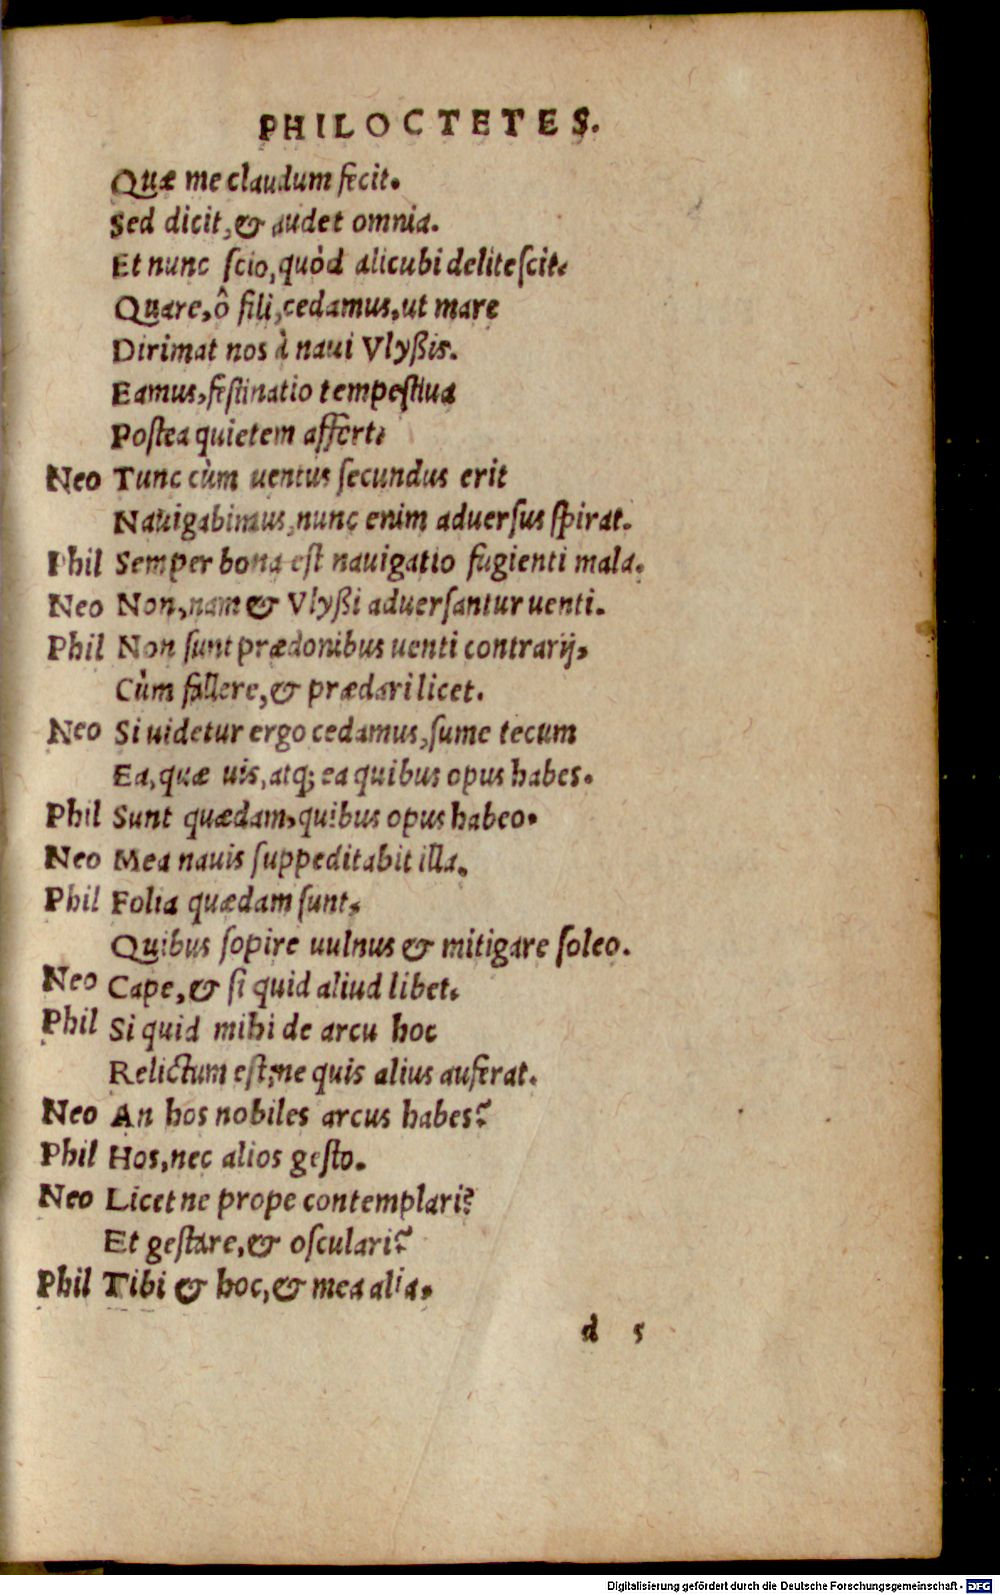 PHILOCTETES.
Quæ me claudum fecit.
Sed dicit, & audet omnia.
Et nunc ſcio, quòd alicubi deliteſcit.
Quare, ô fili, cedamus, ut mare
Dirimat nos à naui Vlyßis.
Eamus, feſtinatio tempeſtiua
Poſtea quietem affert.
Neo Tunc cùm uentus ſecundus erit
Nauigabimus, nunc enim aduerſus ſpirat.
Phil Semper bona eſt nauigatio fugienti mala.
Neo Non, nam & Vlyßi aduerſantur uenti.
Phil Non ſunt prædonibus uenti contrarij,
Cùm fallere, & prædari licet.
Neo Si uidetur ergo cedamus, ſume tecum
Ea, quæ uis, atq; ea quibus opus habes.
Phil Sunt quædam, quibus opus habeo.
Neo Mea nauis ſuppeditabit illa.
Phil Folia quædam ſunt,
Quibus ſopire uulnus & mitigare ſoleo.
Neo Cape, & ſi quid aliud libet.
Phil Si quid mihi de arcu hoc
Relictum eſt, ne quis alius auferat.
Neo An hos nobiles arcus habes?
Phil Hos, nec alios geſto.
Neo Licet ne prope contemplari?
Et geſtare, & oſculari?
Phil Tibi & hoc, & mea alia.
d 5
Digitalisierung gefördert durch die Deutsche Forschungsgemeinschaft - DFG